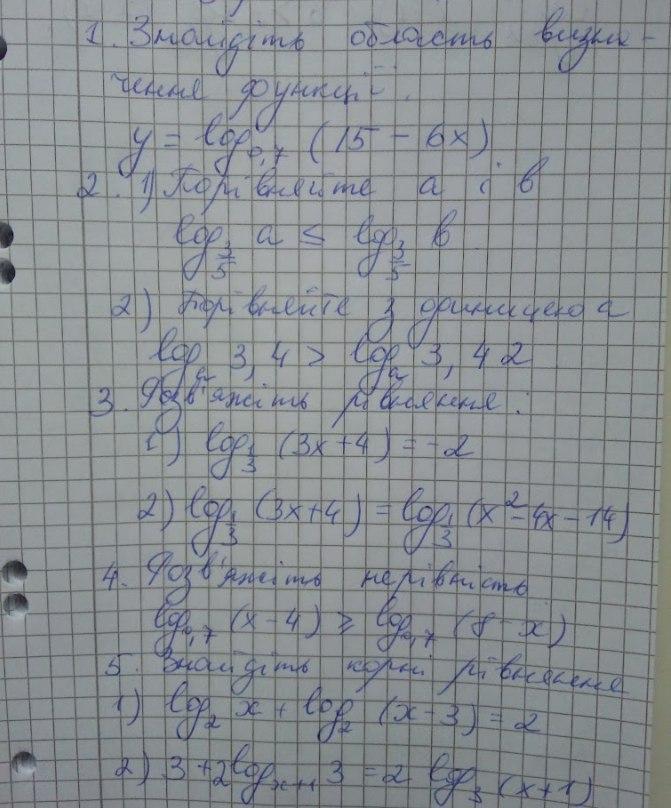 1. Знайдіть область визна-
чення функції.
y = log₀,₇ (15 - 6x)
2. 1) Порівняйте a і b
log_{3/5} a ≤ log_{3/5} b
2) Порівняйте з одиницею a
log_a 3,4 > log_a 3,42
3. Розв'яжіть рівняння:
1) log_{1/3} (3x+4) = -2
2) log_{1/3} (3x+4) = log_{1/3} (x² - 4x - 14)
4. Розв'яжіть нерівність
log₀,₇ (x-4) ≥ log₀,₇ (8-x)
5. Знайдіть корні рівняння
1) log₂ x + log₂ (x-3) = 2
2) 3 + 2log_{x+1} 3 = 2 log₃ (x+1)